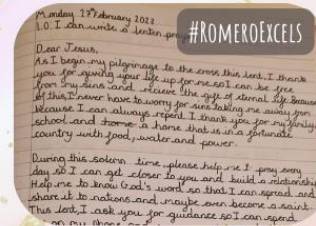 #ROMEROEXCELS
Monday 28th February 2022
L.O. I can write a Lenten prayer
Dear Jesus,
As I begin my pilgrimage to the cross this Lent, I thank
you for giving your life up for me so I can be free
from my sins and recieve the gift of eternal life. Because
of this I never have to worry for sins taking me away from
because I can always repent. I thank you for my family,
school and home a home that is in a fortunate
country with food, water and power.
During this solemn time, please help me I pray every
day so I can get closer to you and build a relationship
Help me to know God's word so that I can spread and
share it to nations and maybe even become a saint.
This Lent, I ask you for guidance so I can spend
on my phone and